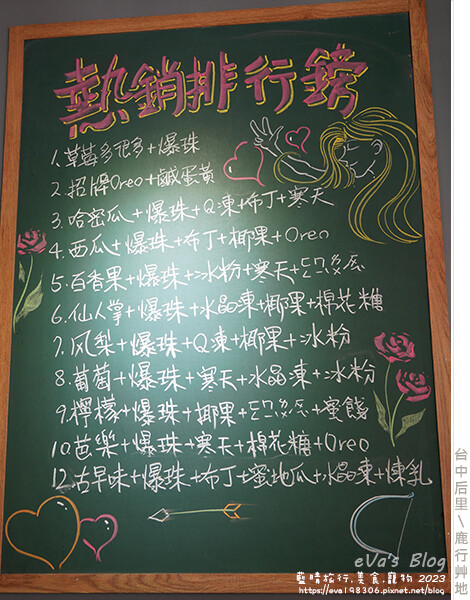 熱銷排行鎊
1.草莓多很多+爆珠
2.招牌Oreo+鹹蛋黃
3.哈密瓜+爆珠+Q凍+布丁+寒天
4.西瓜+爆珠+布丁+椰果+Oreo
5.百香果+爆珠+冰粉+寒天+
6.仙人掌+爆珠+水晶凍+椰果+棉花糖
7.风梨+爆珠+Q凍+椰果+冰粉
8.葡萄+爆珠+寒天+水晶凍+冰粉
9.檸檬+爆珠+椰果+蜜餞
10.芭樂+爆珠+寒天+棉花糖+Oreo
12.古早味+爆珠+布丁+蜜地瓜+水晶凍+煉乳
台中后里\鹿行艸地
eVa's Blog
藍晴旅行.美食.寵物 2023
https://eva198306.pixnet.net/blog